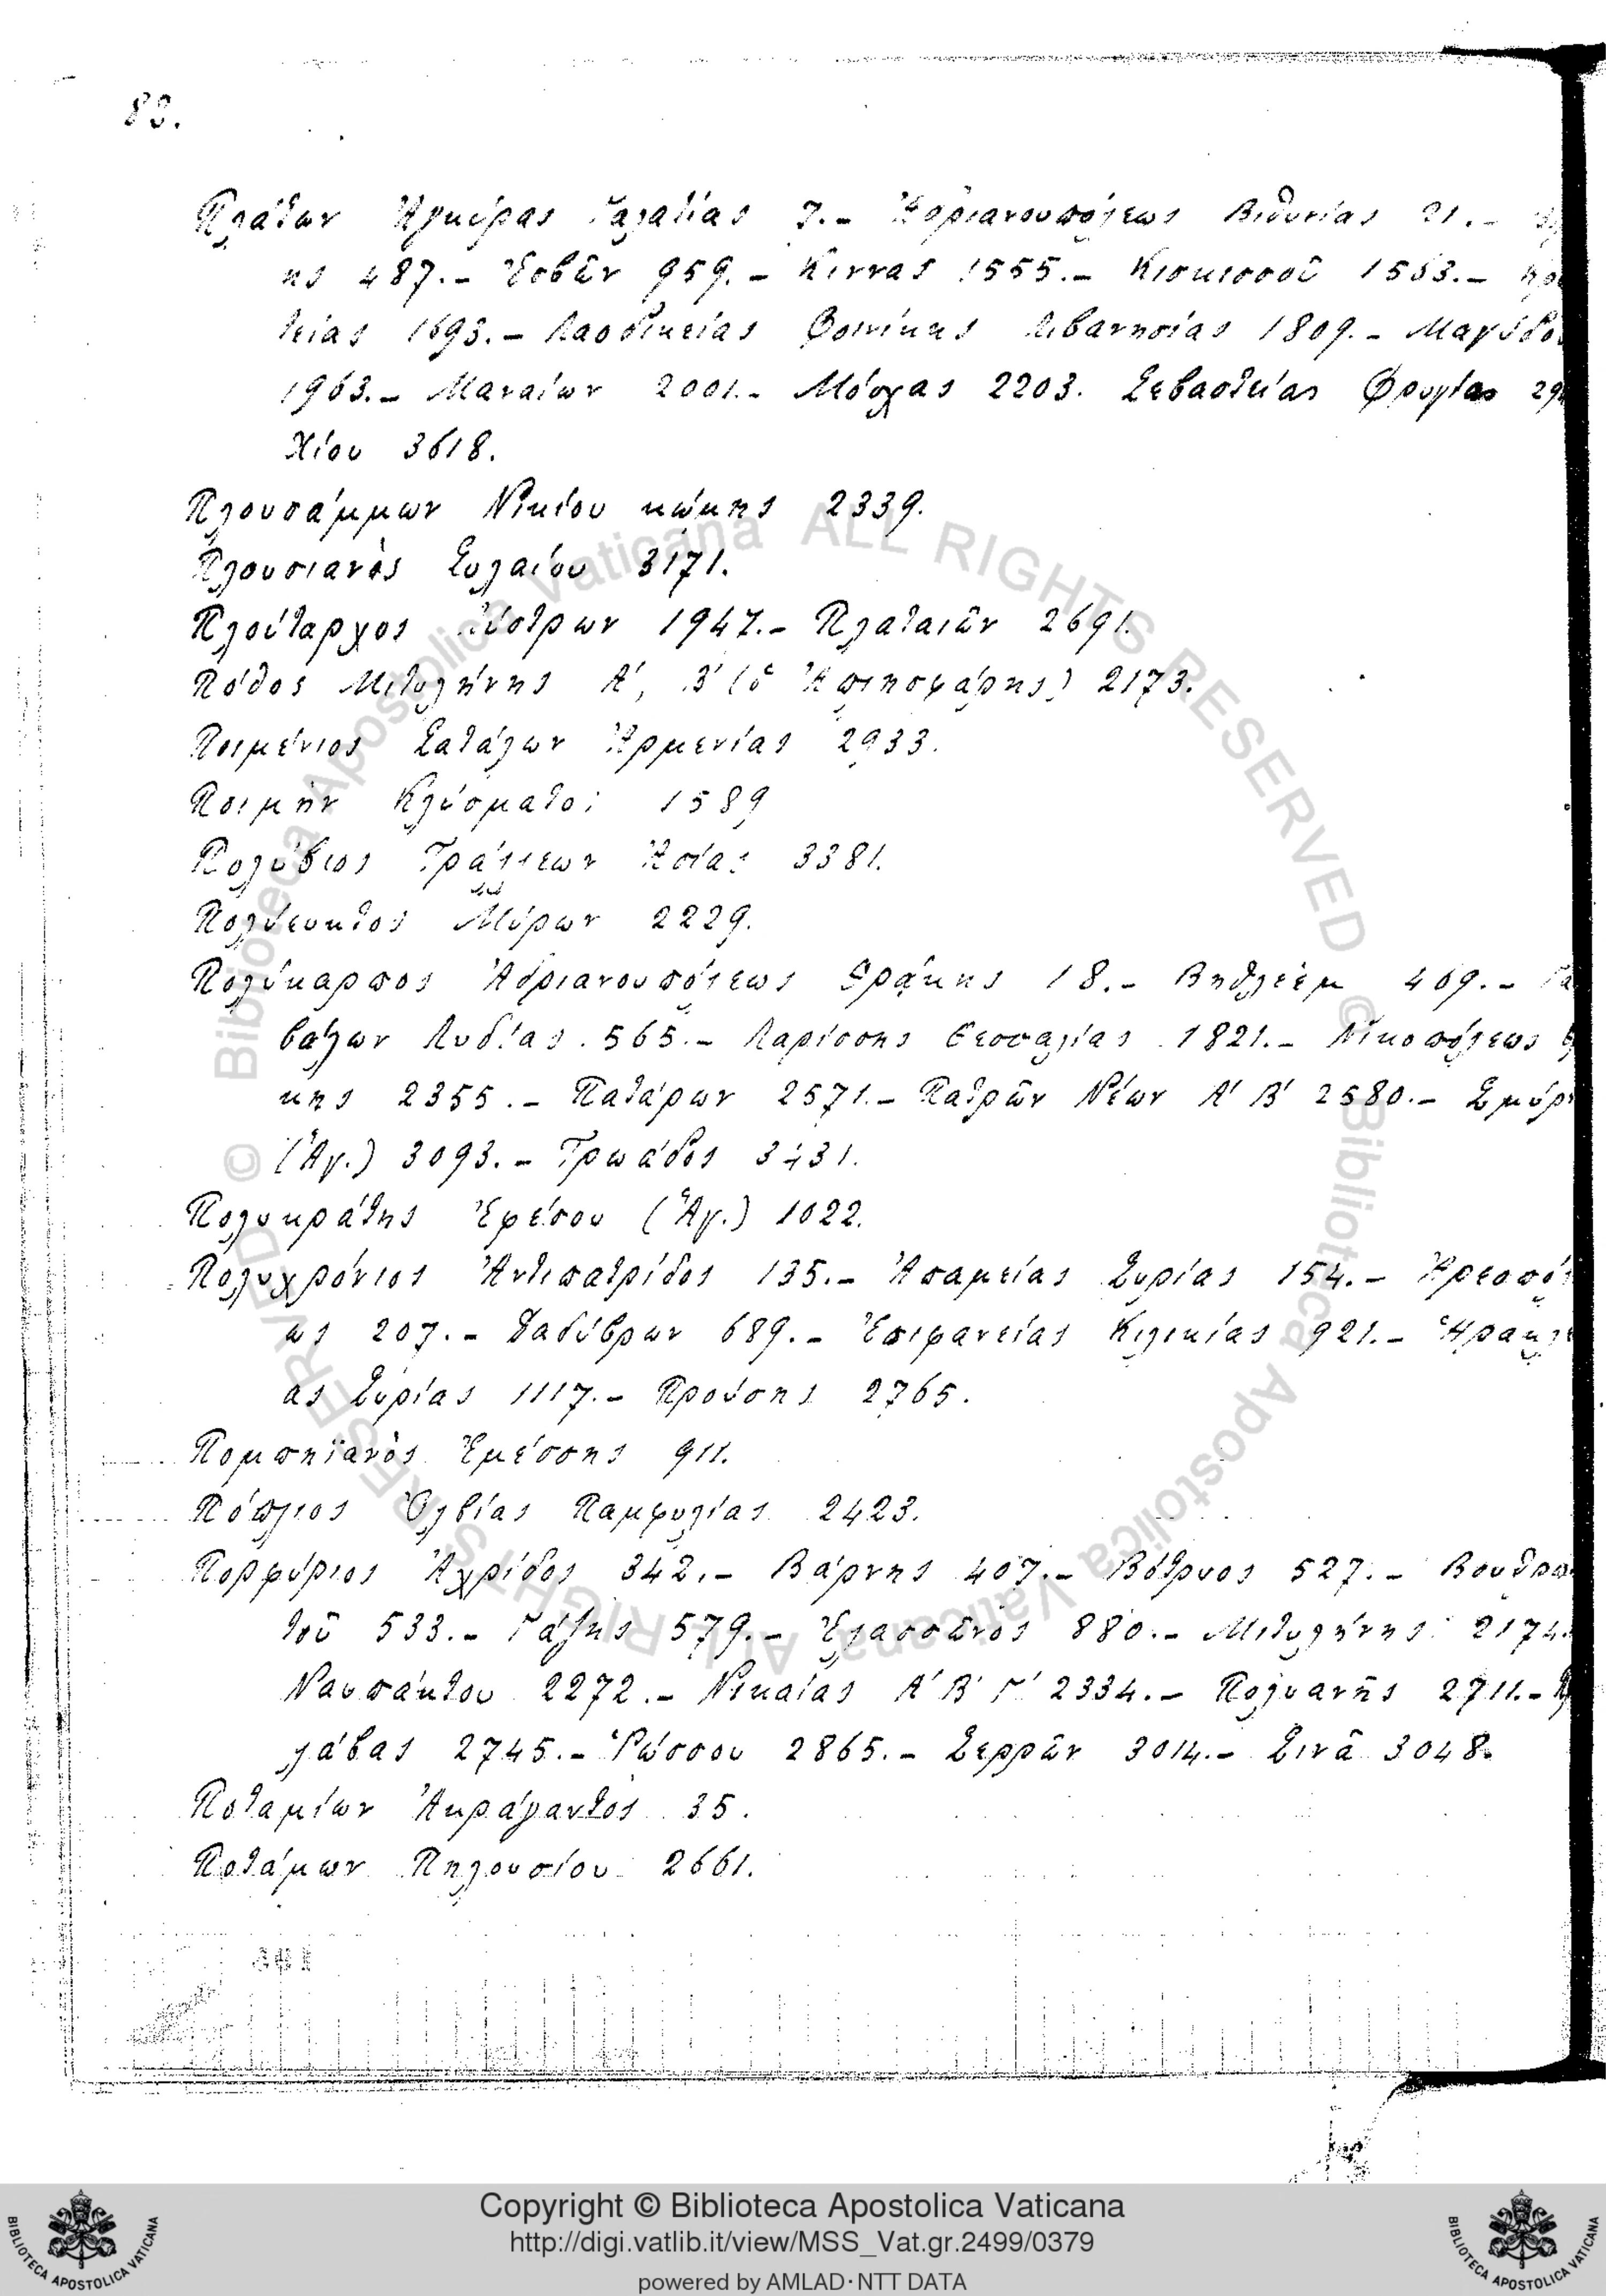 83.
Πλάτων Ἀγκύρας Γαλατίας 7.- Ἀδριανουπόλεως Βιθυνίας 21.-
κης 487.- Ἐσβῶν 959.- Κιννας 1555.- Κισκισσοῦ 1563.-
τείας 1693.- Λαοδικείας Φοινίκης Λιβανησίας 1809.- Μαγύδο
1963.- Μαναίων 2001.- Μόσχας 2203. Σεβαστείας Φρυγίας 29
Χίου 3618.
Πλουσάμμων Νικίου κώμης 2339.
Πλουσιανὸς Συλαίου 3171.
Πλούταρχος Λύστρων 1947.- Πλαταιῶν 2691.
Πόθος Μιτυλήνης Α', Β' (ὁ Ἀπλησφάρης) 2173.
Ποιμένιος Σατάλων Ἀρμενίας 2933.
Ποιμὴν Κλύσματος 1589
Πολύβιος Τράλλεων Ἀσίας 3381.
Πολύευκτος Μύρων 2229.
Πολύκαρπος Ἀδριανουπόλεως Θράκης 18.- Βηθλεὲμ 469.- Γα
βάλων Λυδίας 565.- Λαρίσσης Θεσσαλίας 1821.- Νικοπόλεως
κης 2355.- Πατάρων 2571.- Πατρῶν Νέων Α' Β' 2580.- Σμύρ
(Ἁγ.) 3093.- Τρωάδος 3431.
Πολυκράτης Ἐφέσου (Ἁγ.) 1022.
Πολυχρόνιος Ἀντιπατρίδος 135.- Ἀπαμείας Συρίας 154.- Ἀρεοπόλ
ως 207.- Δαδύβρων 689.- Ἐπιφανείας Κιλικίας 921.- Ἡρακλε
ας Συρίας 1117.- Προύσης 2765.
Πομπηϊανὸς Ἐμέσσης 911.
Πόπλιος Ὀλβίας Παμφυλίας 2423.
Πορφύριος Ἀχρίδος 342.- Βάρνης 407.- Βότρυος 527.- Βουθρω
τοῦ 533.- Γάζης 579.- Ἐλασσῶνος 880.- Μιτυλήνης 2174.
Ναυπάκτου 2272.- Νικαίας Α' Β' Γ' 2334.- Πολυανῆς 2711.-
λάβας 2745.- Ῥώσσου 2865.- Σερρῶν 3014.- Σινᾶ 3048.
Ποταμίων Ἀκράγαντος 35.
Ποτάμων Πηλουσίου 2661.
© Biblioteca Apostolica Vaticana ALL RIGHTS RESERVED
© Biblioteca Apostolica Vaticana ALL RIGHTS RESERVED
Copyright © Biblioteca Apostolica Vaticana
http://digi.vatlib.it/view/MSS_Vat.gr.2499/0379
powered by AMLAD·NTT DATA
BIBLIOTECA APOSTOLICA VATICANA
BIBLIOTECA APOSTOLICA VATICANA